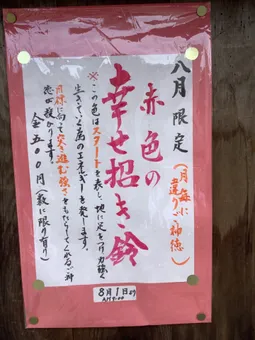 八月限定
(月毎に違うご神徳)
赤色の
幸せ招き鈴
※この色はスタートを表し、地に足をつけ力強く
生きていく為のエネルギーを発します。
目標に向って突き進む強さをもたらしてくれるご神
徳が授かります。
金五〇〇円(数に限り有り)
8月1日より
AM9:00